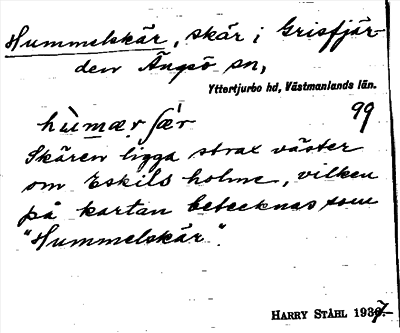 Hummelskär, skär i Grisfjär-
den Ängsö sn,
Yttertjurbo hd, Västmanlands län.
99
hùmærʃæ̀r
Skären ligga strax väster
om Eskils holme, vilken
på kartan betecknas som
"Hummelskär".
HARRY STÅHL 1937.